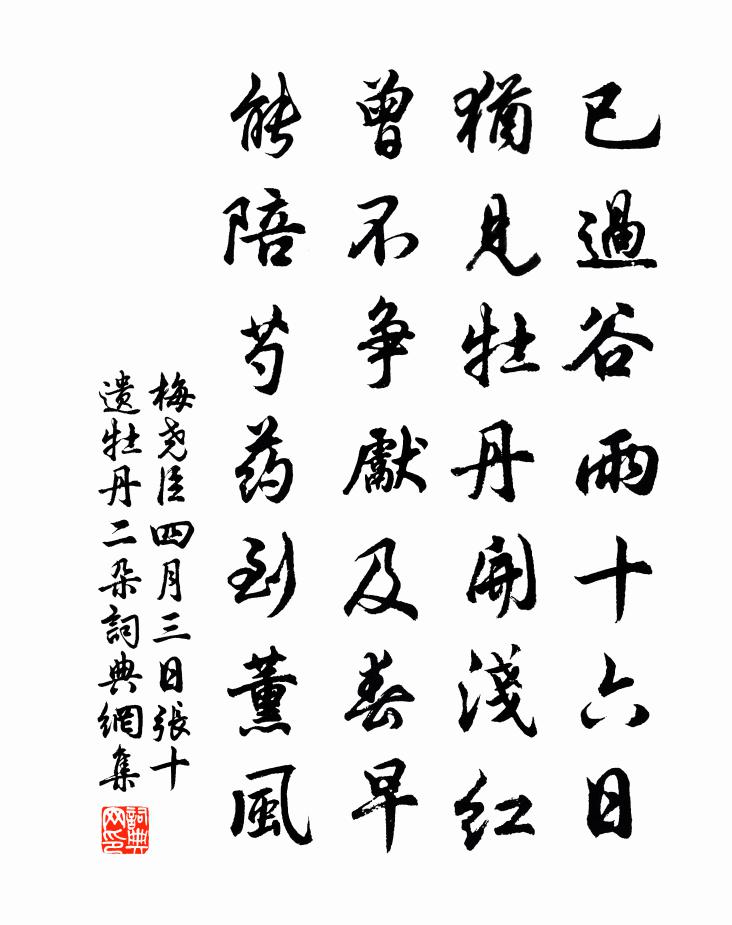 已過谷雨十六日
猶見牡丹開淺红
曾不争獻及春早
能陪芍药到薰風
梅尧臣四月三日張十
遗牡丹二朵詞典網集
詞典网印